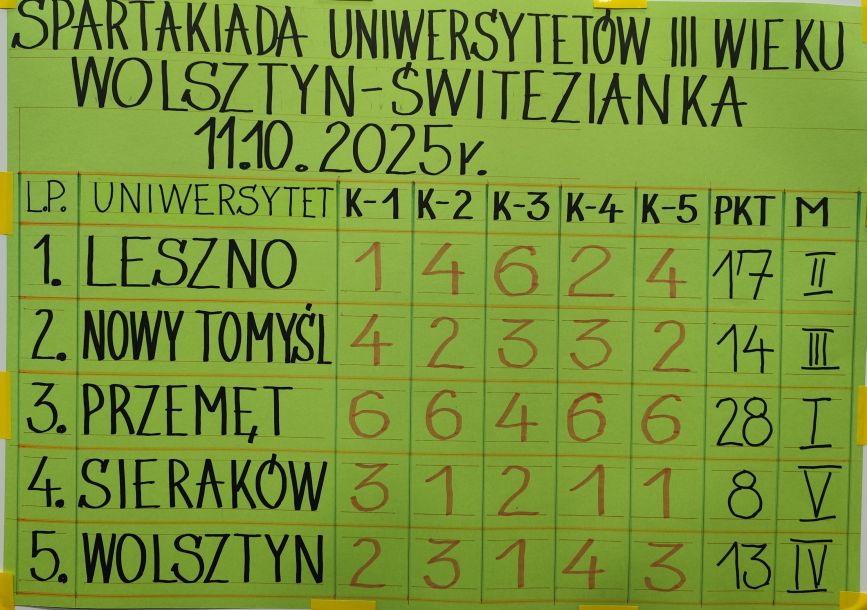 SPARTAKIADA UNIWERSYTETÓW III WIEKU
WOLSZTYN-ŚWITEZIANKA
11.10.2025r.
L.P. UNIWERSYTET K-1 K-2 K-3 K-4 K-5 PKT M
1. LESZNO 1 4 6 2 4 17 II
2. NOWY TOMYŚL 4 2 3 3 2 14 III
3. PRZEMĘT 6 6 4 6 6 28 I
4. SIERAKÓW 3 1 2 1 1 8 V
5. WOLSZTYN 2 3 1 4 3 13 IV